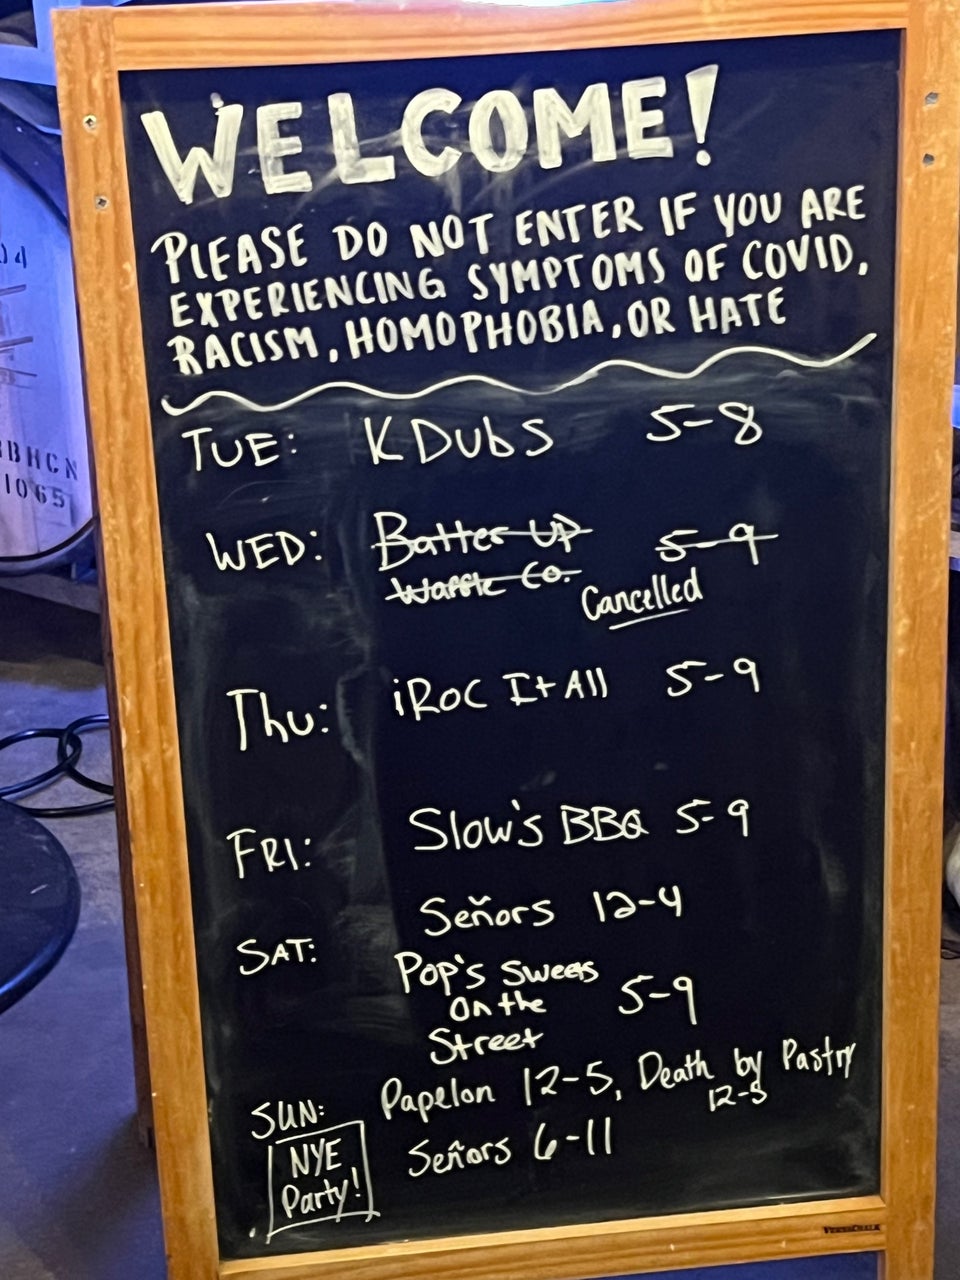 WELCOME!
PLEASE DO NOT ENTER IF YOU ARE
EXPERIENCING SYMPTOMS OF COVID,
RACISM, HOMOPHOBIA, OR HATE
TUE: K DUbS 5-8
WED: Batter UP 5-9
Waffle Co. Cancelled
Thu: iRoc It All 5-9
FRI: Slow's BBQ 5-9
Señors 12-4
SAT:
Pop's Sweets
On the 5-9
Street
Papelon 12-5, Death by Pastry
12-5
SUN:
NYE Señors 6-11
Party!
04
BBHCN
1065
VERSACHALK